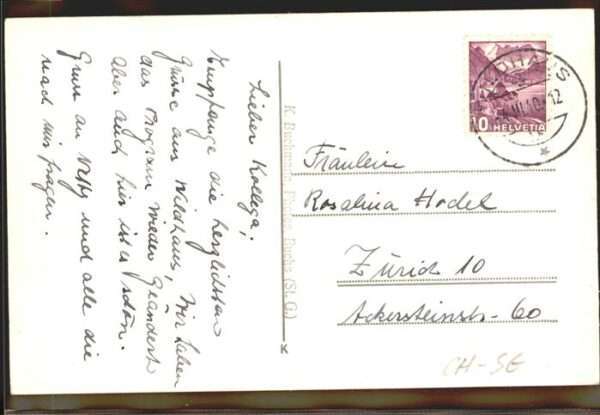 Lieber Kollega,
Empfange die herzlichsten
Grüsse aus Wildhaus, Wir haben
das Program wieder geändert
Aber auch hier ist es schön.
Gruss an und alle die
nach mir fragen.
K. Buchs (St. G.)
10 HELVETIA
12
Fräulein
Rosalina Hodel
Zürich 10
Ackersteinstr. 60
CH-SG